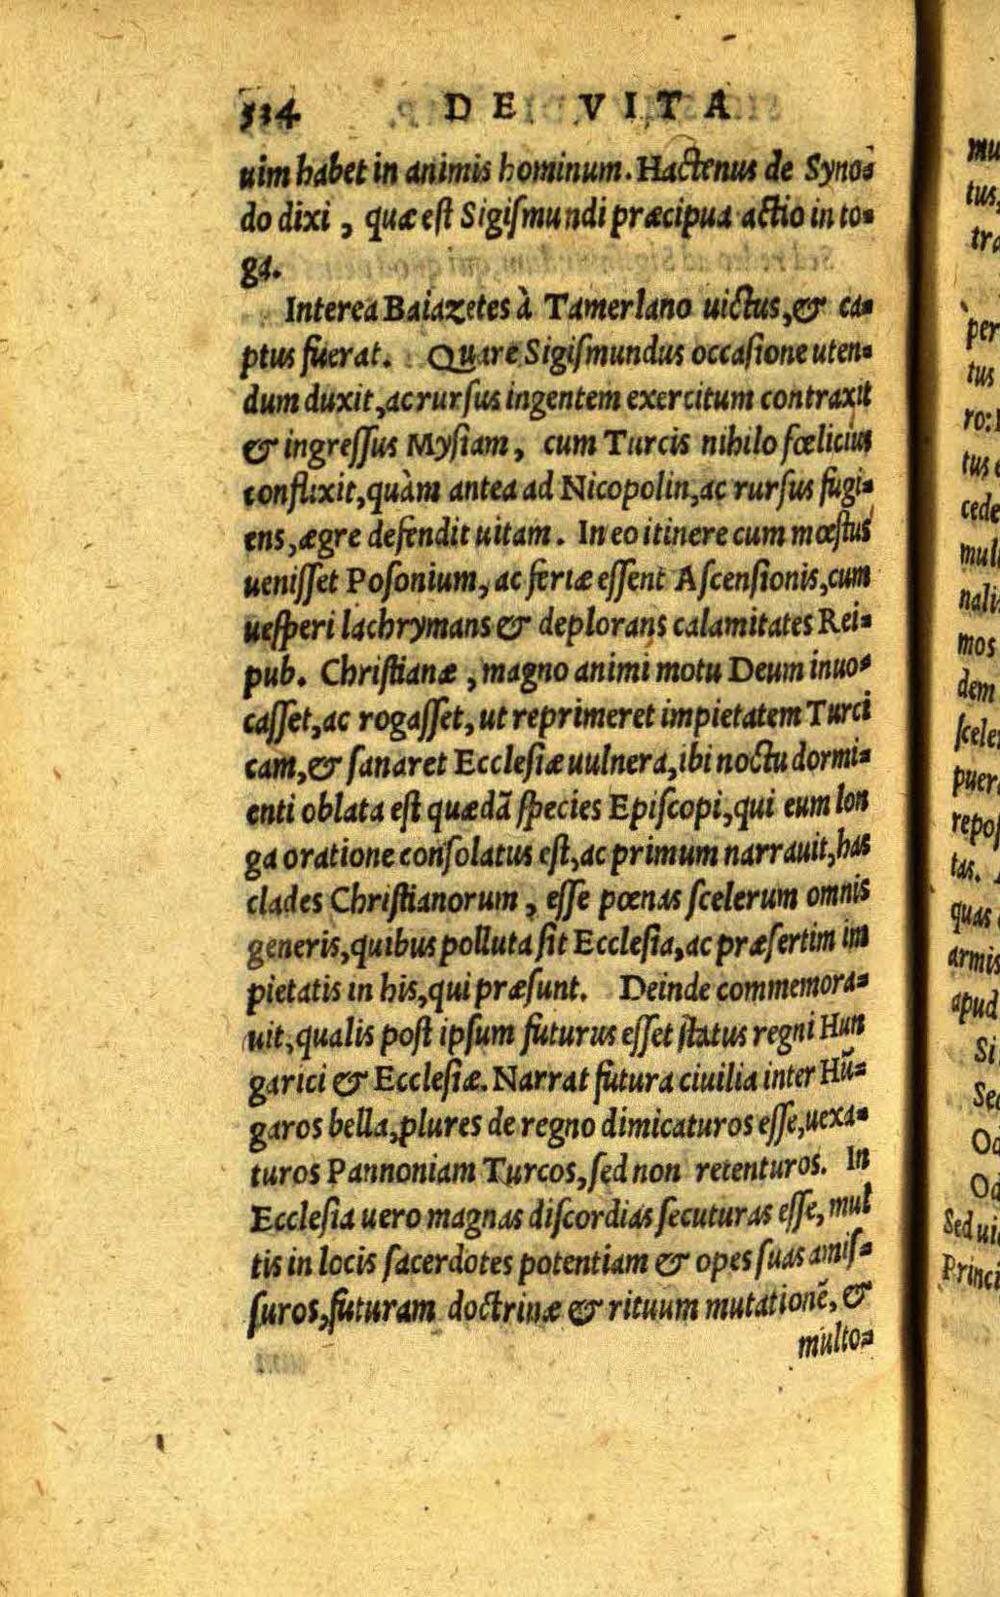 514 DE VITA
uim habet in animis hominum. Hactenus de Syno⸗
do dixi, quæ est Sigiſmundi præcipua actio in to⸗
ga.
Interea Baiazetes à Tamerlano uictus, & ca⸗
ptus fuerat. Quare Sigiſmundus occaſione uten⸗
dum duxit, ac rurſus ingentem exercitum contraxit
& ingreſſus Myſiam, cum Turcis nihilo fœlicius
conflixit, quàm antea ad Nicopolin, ac rurſus fugi⸗
ens, ægre defendit uitam. In eo itinere cum mœſtus
ueniſſet Poſonium, ac feriæ eſſent Aſcenſionis, cum
ueſperi lachrymans & deplorans calamitates Rei⸗
pub. Chriſtianæ, magno animi motu Deum inuo⸗
caſſet, ac rogaſſet, ut reprimeret impietatem Turci
cam, & ſanaret Eccleſiæ uulnera, ibi noctu dormi⸗
enti oblata eſt quædã ſpecies Epiſcopi, qui eum lon
ga oratione conſolatus eſt, ac primum narrauit, has
clades Chriſtianorum, eſſe pœnas ſcelerum omnis
generis, quibus polluta ſit Eccleſia, ac præſertim im
pietatis in his, qui præſunt. Deinde commemora⸗
uit, qualis poſt ipſum futurus eſſet ſtatus regni Hun
garici & Eccleſiæ. Narrat futura ciuilia inter Hũ⸗
garos bella, plures de regno dimicaturos eſſe, uexa⸗
turos Pannoniam Turcos, ſed non retenturos. In
Eccleſia uero magnas diſcordias ſecuturas eſſe, mul
tis in locis ſacerdotes potentiam & opes ſuas amiſ⸗
ſuros, futuram doctrinæ & rituum mutationẽ, &
multo⸗
mu
tus,
tra
per
tus
ro:
tus
cede
mul
nali
mos
dem
ſcele
puer
repoſ
tas.
quas
armis
apud
Si
Sed
Od
Od
Sed ui
Princi